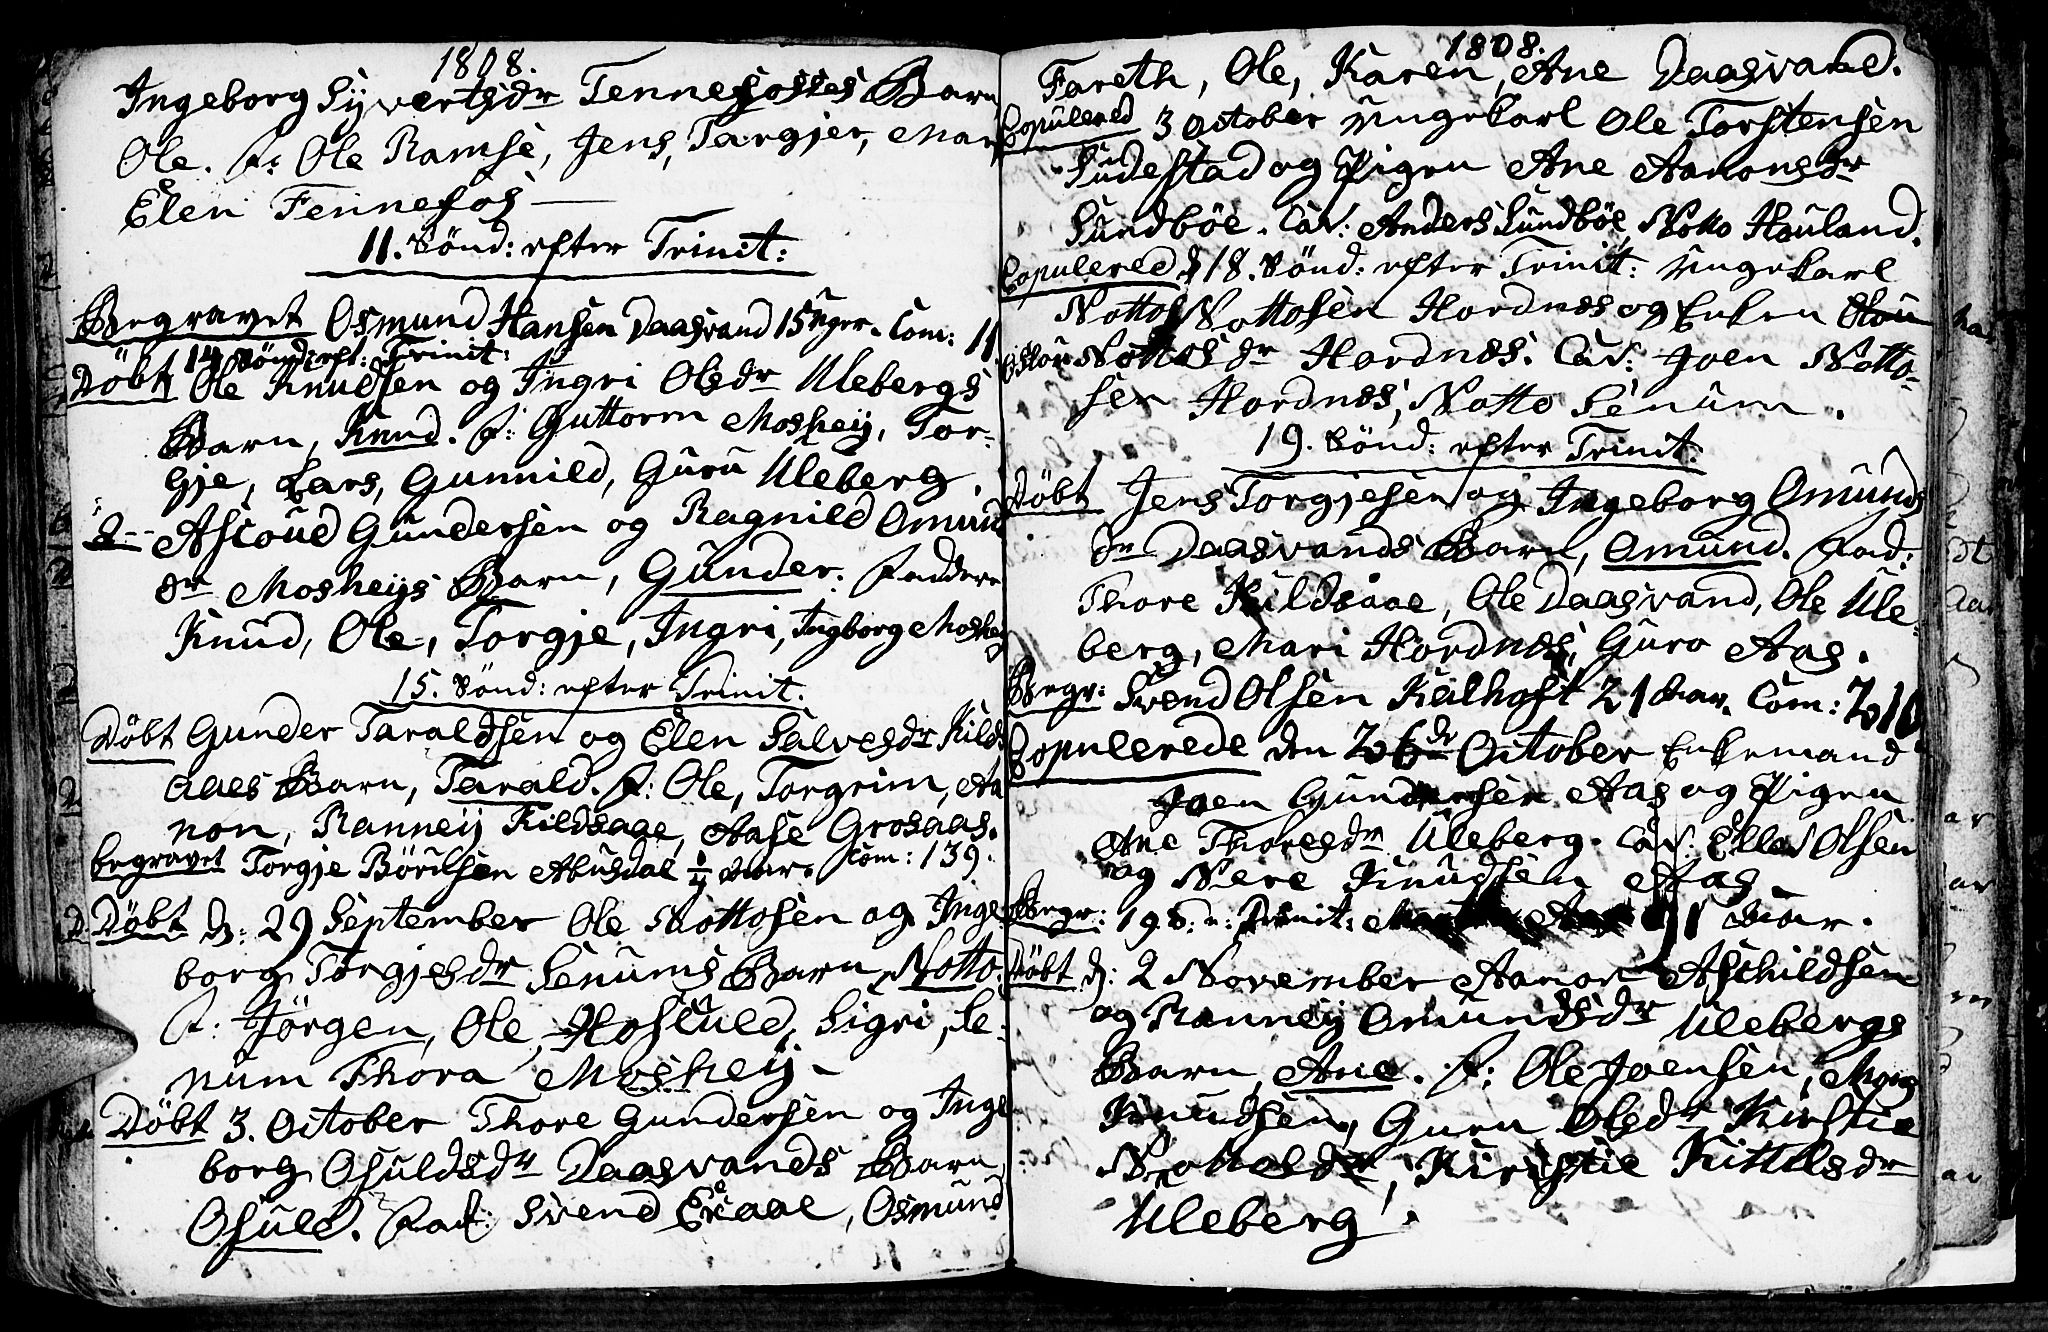 1808.
Ingeborg Syvertsdr Fennefosses Barn
Ole. F: Ole Ramse, Jens, Targjer, Mar
Elen Fennefos
11. Sönd: efter Trinit:
Begravet Osmund Hansen Daasvand 15 Uger. Com: 11
14 Sönd: eft: Trinit:
Döbt Ole Knudsen og Ingri Olsdr Ulebergs
Barn, Knud. F: Guttorm Mosheij, Tor-
gje, Lars, Gunnild, Guru Uleberg.
Ascoud Gundersen og Ragnild Omund
dr Mosheijs Barn, Gunder. Faddere
Knud, Ole, Torgje, Ingri, Ingborg Mosheij
15. Sönd: efter Trinit.
Döbt Gunder Taraldsen og Elen Salvesdr Kilds
aaes Barn, Tarald. F: Ole, Torgrim, Aa
non, Ranneij Kildsaae, Aase Grosaas.
begravet Torgje Börulsen Abusdal 1/4 Aar. Com: 139.
Döbt d: 29 September Ole Nottosen og Inge
borg Torgjesdr Senums Barn, Notto.
F: Jörgen, Ole, Hosculd, Sigri, Se-
num Thora Mosheij.
Döbt 3. October Thore Gundersen og Inge
borg Osuldsdr Daasvands Barn
Osuld. Fad: Svend Eraae, Osmund
1808.
Fareth, Ole, Karen, Ane Daasvand.
Copulered 3 October Ungekarl Ole Torstensen
Rudestad og Pigen Ane Aanonsdr
Sundböe. Cav: Anders Sundböe, Notto Hauland.
Copulered d 18. Sönd: efter Trinit: Ungekarl
Notto Nottosen Hordnes og Enken
Nottosdr Hordnes. Cav: Joen Notto-
sen Hordnes, Notto Senum.
19. Sönd: efter Trinit:
Döbt Jens Torgjesen og Ingeborg Omunds
dr Daasvands Barn, Omund. Fad:
Thore Kildsaae, Ole Daasvand, Ole Ule-
berg, Mari Hordnes, Guro Aas.
Begr: Svend Olsen Kalhoft 21 Aar. Com: 210
Copulerede den 26de October Enkemand
Joen Gundersen Aas og Pigen
Ane Thoresdr Uleberg. Cav: Ellef Olsen
og Nere Knudsen Aas.
Begr: 19 S. e: Trinit: 91 Aar.
Döbt d: 2 November Aanon Aschildsen
og Ranneij Omundsdr Ulebergs
Barn, Ane. F: Ole Joensen, Mons
Knudsen, Guru Olsdr Kirstie
Nottosdr, Kirstie Kittelsdr
Uleberg.